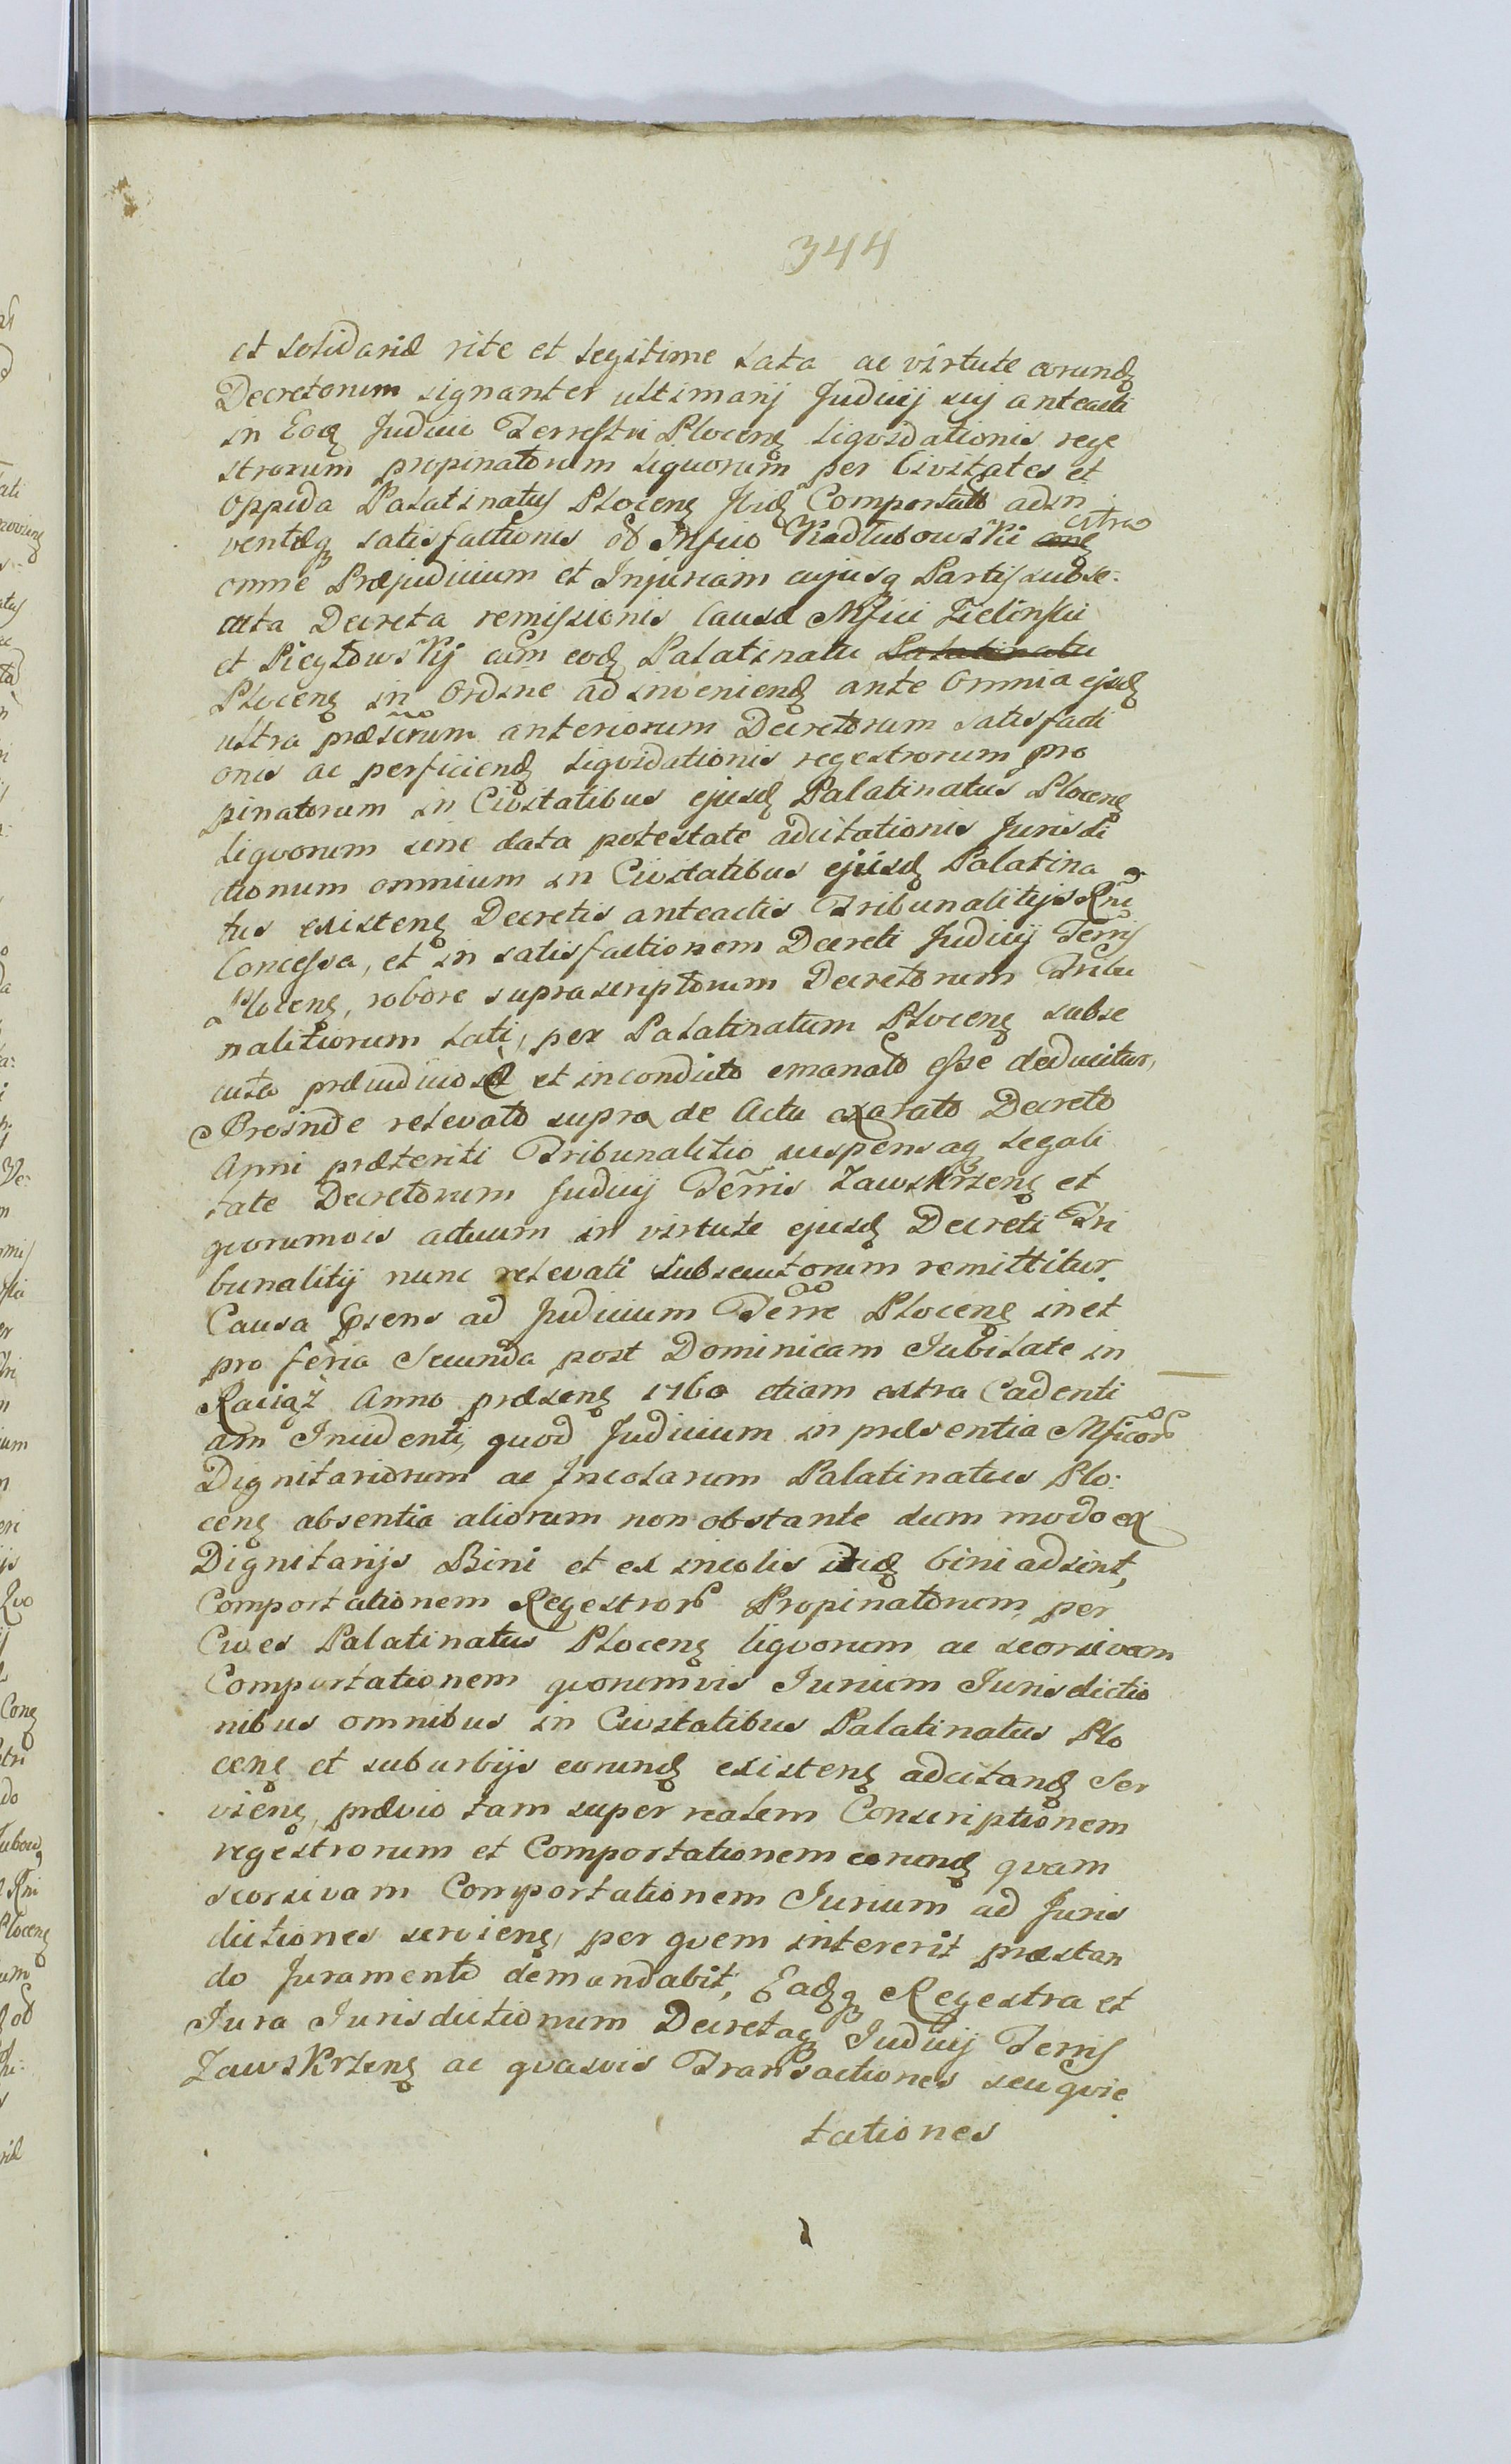 344
et solidariæ rite et legitime lata ac virtute eorundȩ
Decretorum signanter ultimarij Judicij sui anteacti
in Eodȩ Judicio Terrestri Plocenȩ liqvidationis rege
strorum propinatorum liquorum per Civitates et
Oppida Palatinatus Plocenȩ Comportatæ adin
ventæqȝ satisfactionis Mfico Kadłubowski citra
omne Præjudicium et Injuriam cujusq Partis subse:
cuta Decreta remissionis Causæ Mfici Zielinski
et Pieglowskij cum eodȩ Palatinatu Palatinatu
Plocenȩ in Ordine ad inveniendȩ ante Omnia ejusdȩ
ultra anteriorum Decretorum satisfacti
onis ac perficiendȩ liqvidationis regestrorum pro
pinatorum in Civitatibus ejusdȩ Palatinatus Plocenȩ
liqvorum sine data potestate adcitationis Jurisdi
ctionum omnium in Civitatibus ejusdȩ Palatina
tus existenȩ Decretis anteactis Tribunalitijs Rni
Concessa, et in satisfactionem Decreti Judicij Terris
Plocenȩ, robore suprascriptorum Decretorum Tribu
nalitiorum lati, per Palatinatum Plocenȩ subse
cuta præjudiciosè et inconducto emanato esse deducitur,
Proinde relevato supra de Actu exarato Decreto
Anni præteriti Tribunalitio suspensaqȝ legali
tate Decretorum Judicij Terris Zawskrzenȩ et
qvorumvis actuum in virtute ejusdȩ Decreti Tri
bunalitij nunc relevati subsecutorum remittitur
Causa Præsens ad Judicium Terre Plocenȩ in et
pro feria Secunda post Dominicam Jubilate in
Raciąż Anno præsenȩ 1760 etiam extra Cadenti
am Incidentȩ quod Judicium in præsentia Mficor
Dignitariorum ac Incolarum Palatinatus Plo:
cenȩ absentia aliorum non obstante dum modo ex
Dignitarijs Bini et ex incolis itidȩ bini adsint,
Comportationem Regestror Propinatorum per
Cives Palatinatus Plocenȩ liqvorum ac seorsivam
Comportationem qvorumvis Jurium Jurisdictio
nibus omnibus in Civitatibus Palatinatus Plo
cenȩ et suburbijs eorundȩ existenȩ adcitandȩ Ser
vienȩ, prævio tam super realem Conscriptionem
regestrorum et Comportationem eorundȩ qvam
seorsivam Comportationem Jurium ad Juris
dictiones servienȩ, per qvem intererit præstan
do Juramento demandabit, Eadȩqȝ Regestra et
Jura Jurisdictionum Decretaqȝ Judicij Terris
Zawskrzenȩ ac qvasvis Transactiones seu qvie
tationes